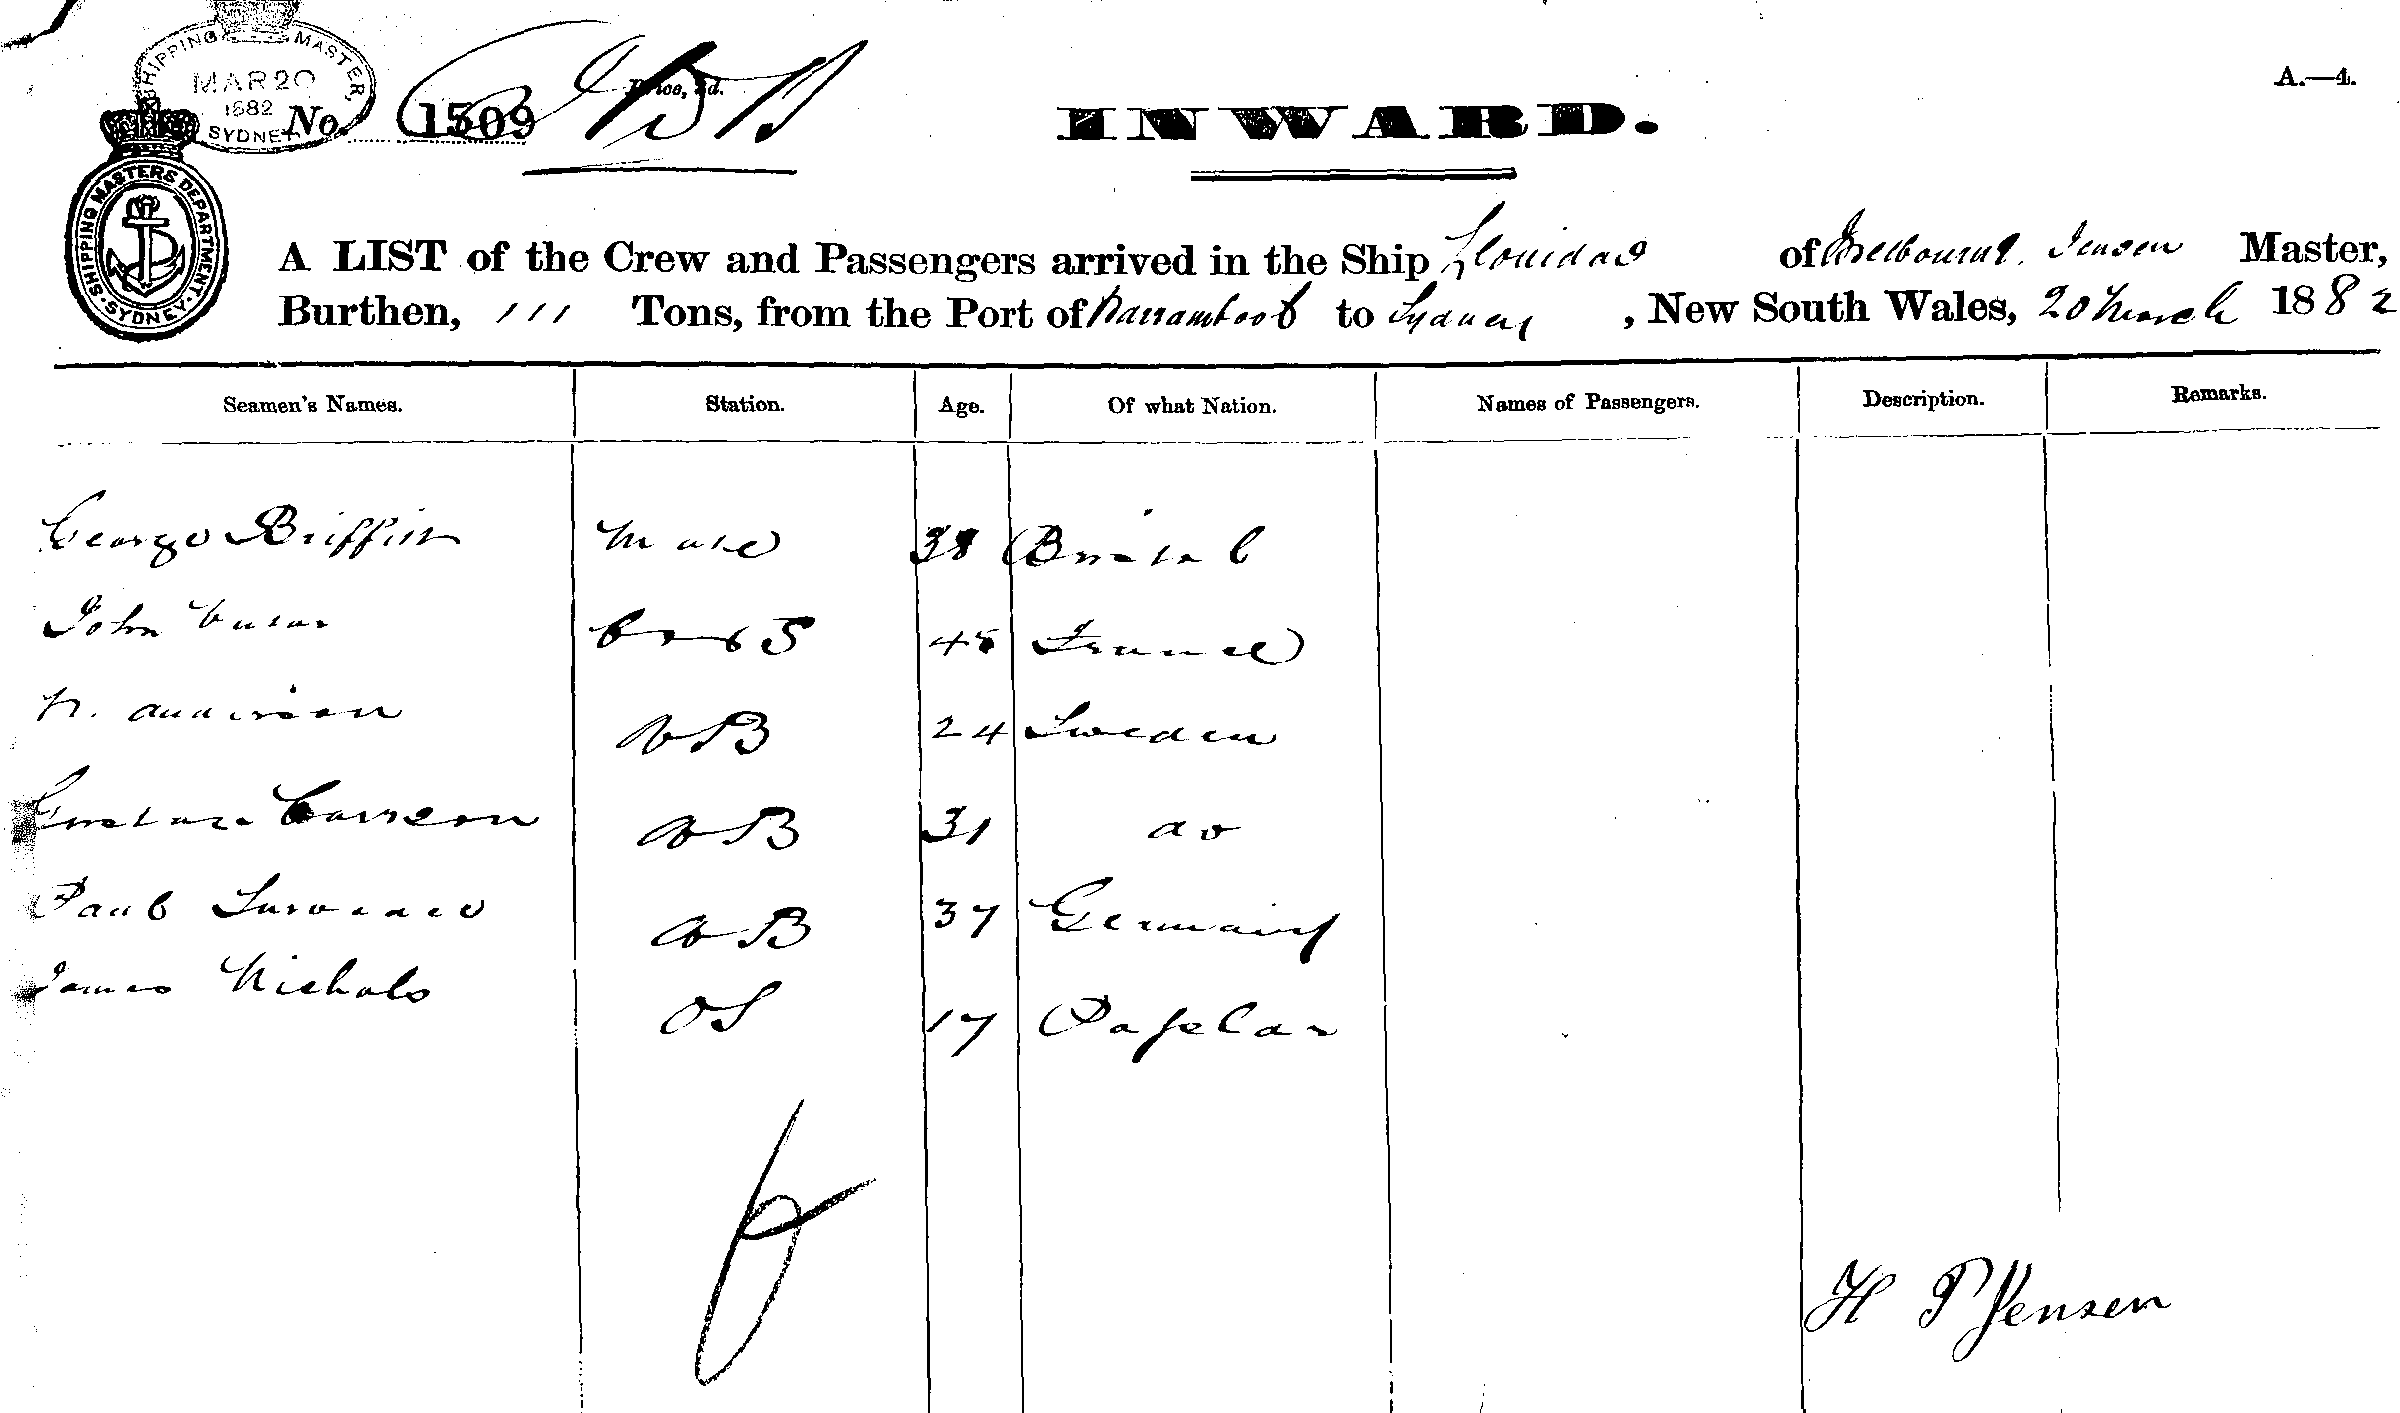 SHIPPING MASTER, SYDNEY
MAR 20
1882
No. 1509
Price, d.
INWARD.
A.—4.
SHIPPING MASTERS DEPARTMENT SYDNEY
A LIST of the Crew and Passengers arrived in the Ship of Melbourne. Jensen Master,
Burthen, 111 Tons, from the Port of to Sydney, New South Wales, 20 March 1882
Seamen's Names. Station. Age. Of what Nation. Names of Passengers. Description. Remarks.
George Griffith Mate 38 Bristol
John Cook S 48 France
N. Anderson AB 24 Sweden
Gustave AB 31 do
Paul AB 37 Germany
James Nichols OS 17
H P Jensen